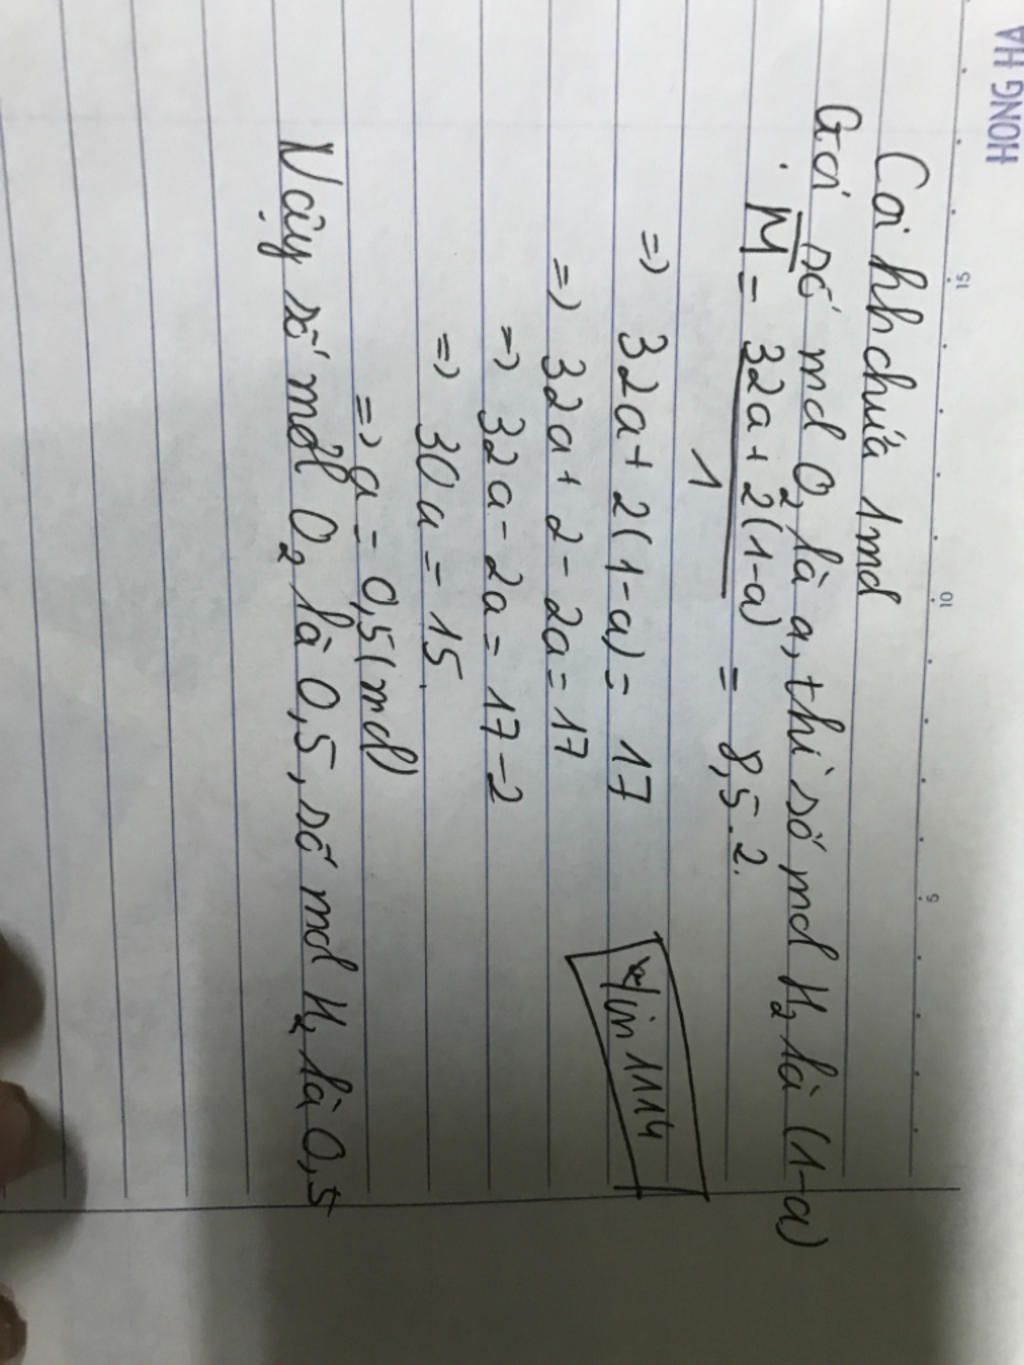 HONG HA
15
10
5
Coi hh chứa 1 mol
Gọi số mol O2 là a, thì số mol H2 là (1-a)
M̅ = 32a + 2(1-a) = 8,5.2.
1
=> 32a + 2(1-a) = 17
=> 32a + 2 - 2a = 17
=> 32a - 2a = 17 - 2
=> 30a = 15.
=> a = 0,5 (mol)
Vậy số mol O2 là 0,5, số mol H2 là 0,5